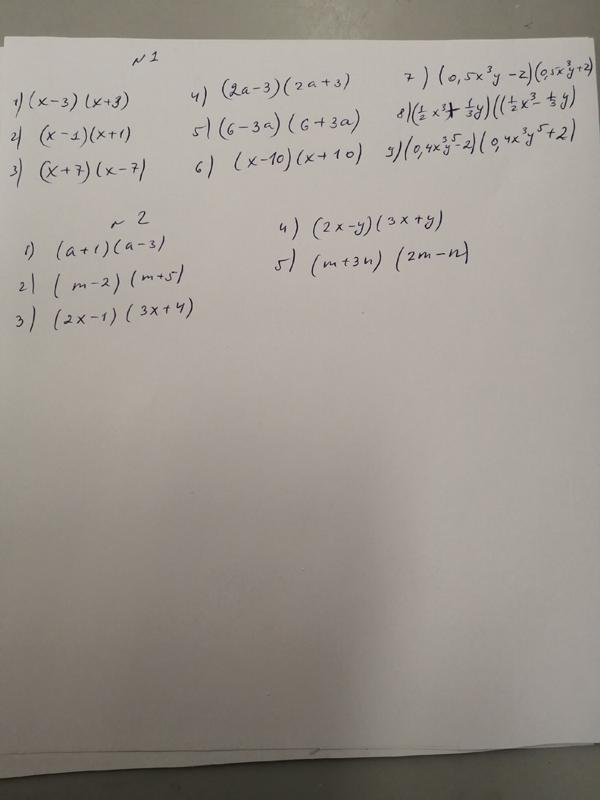 №1
1) (x-3)(x+3)
2) (x-1)(x+1)
3) (x+7)(x-7)
4) (2a-3)(2a+3)
5) (6-3a)(6+3a)
6) (x-10)(x+10)
7) (0,5x³y-2)(0,5x³y+2)
8) (½x³+⅓y)((½x³-⅓y)
9) (0,4x³y⁵-2)(0,4x³y⁵+2)
№2
1) (a+1)(a-3)
2) (m-2)(m+5)
3) (2x-1)(3x+4)
4) (2x-y)(3x+y)
5) (m+3n)(2m-n)